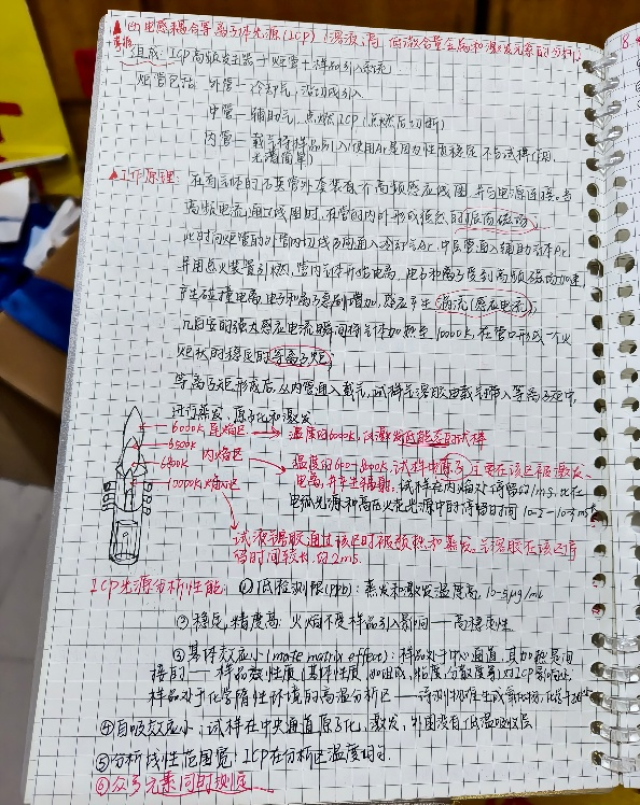 ▲ 电感耦合等离子体光源(ICP):溶液,高、低微含量金属和难激发元素的分析
组成:ICP高频发生器+炬管+样品引入系统
炬管包括:外管—冷却气,沿切线引入
中管—辅助气,点燃ICP(点燃后切断)
内管—载气将样品引入(使用Ar是因为性质稳定,不与试样作用,
光谱简单)
▲工作原理:在有气体的石英管外套装有个高频感应线圈,并与电源连接。当
高频电流通过线圈时,在管的内外形成强烈的振荡磁场。
此时向炬管的外管内切线方向通入冷却气Ar,中层管通入辅助气体Ar,
并用点火装置引燃,管内气体开始电离,电子和离子受到高频磁场加速,
产生碰撞电离,电子和离子急剧增加,感应产生涡流(感应电流)。
几百安的强大感应电流瞬间将气体加热至10000K,在管口形成一个火
炬状的稳定的等离子炬
等离子炬形成后,从内管通入载气,试样气溶胶由载气带入等离子炬中,
进行蒸发、原子化和激发
6000K 尾焰区 → 温度约6000K,仅激发低能态的试样
6500K 内焰区
6800K
10000K 焰心区
温度约6000-8000K,试样中原子主要在该区被激发、
电离,并产生辐射,试样在内焰处停留约1ms,比在
电弧光源和高压火花光源中的停留时间10-2-10-3ms长
试液气溶胶通过该区时被预热和蒸发,气溶胶在该区停
留时间较长,约2ms.
ICP光源分析性能:①低检测限(ppb):蒸发和激发温度高,10-5μg/mL
②稳定,精度高:火焰不受样品引入影响——高稳定性
③基体效应小(mate matrix effect):样品处于中心通道,其加热是间
接的——样品数性质(基体性质,如组成、粘度、分散度等)对ICP影响小
样品处于化学隋性环境的高温分析区——待测物难生成氧化物,
④自吸效应小:试样在中央通道原子化、激发,外围没有低温吸收层
⑤分析线性范围宽:ICP在分析区温度均匀.
⑥众多元素同时测定.